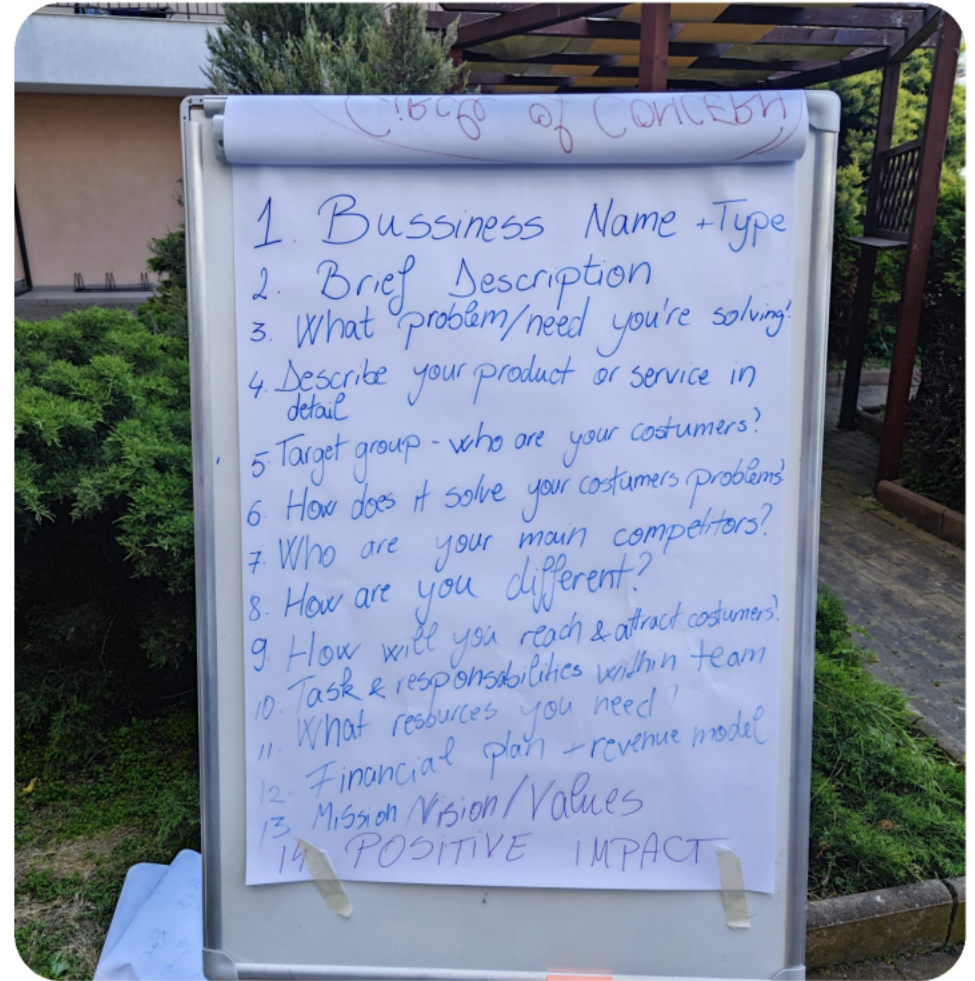 Circle of CONCERN
1. Bussiness Name + Type
2. Brief Description
3. What problem/need you're solving?
4. Describe your product or service in
detail
5. Target group - who are your costumers?
6. How does it solve your costumers problems?
7. Who are your main competitors?
8. How are you different?
9. How will you reach & attract costumers?
10. Task & responsabilities within team
11. What resources you need?
12. Financial plan + revenue model
13 Mission Vision/Values
14 POSITIVE IMPACT